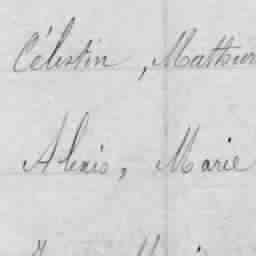 Célestin, Mathur
Alexis, Marie